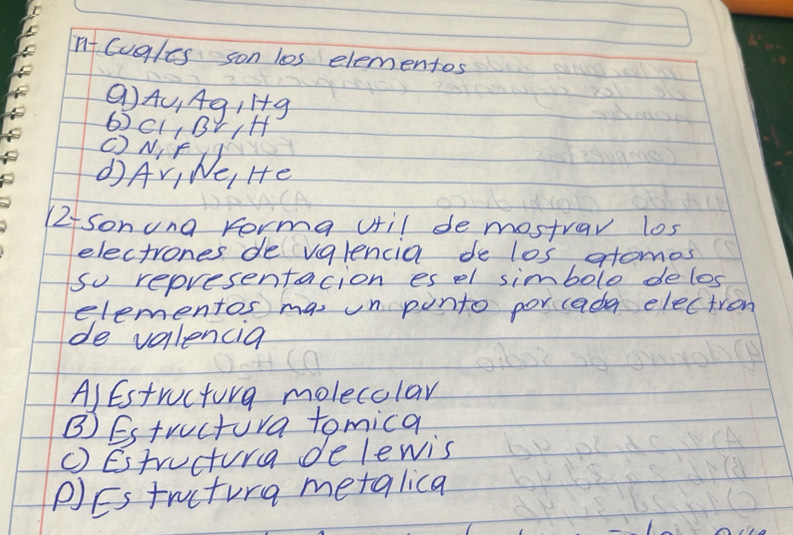 11- Cuales son los elementos
a) Au, Ag, Hg
b) Cl, Br, H
c) N, F
d) Ar, Ne, He
12- son una forma util de mostrar los
electrones de valencia de los atomos
su representacion es el simbolo de los
elementos mas un punto por cada electron
de valencia
A) Estructura molecolar
B) Estructura tomica
C) Estructura de lewis
D) Estructura metalica